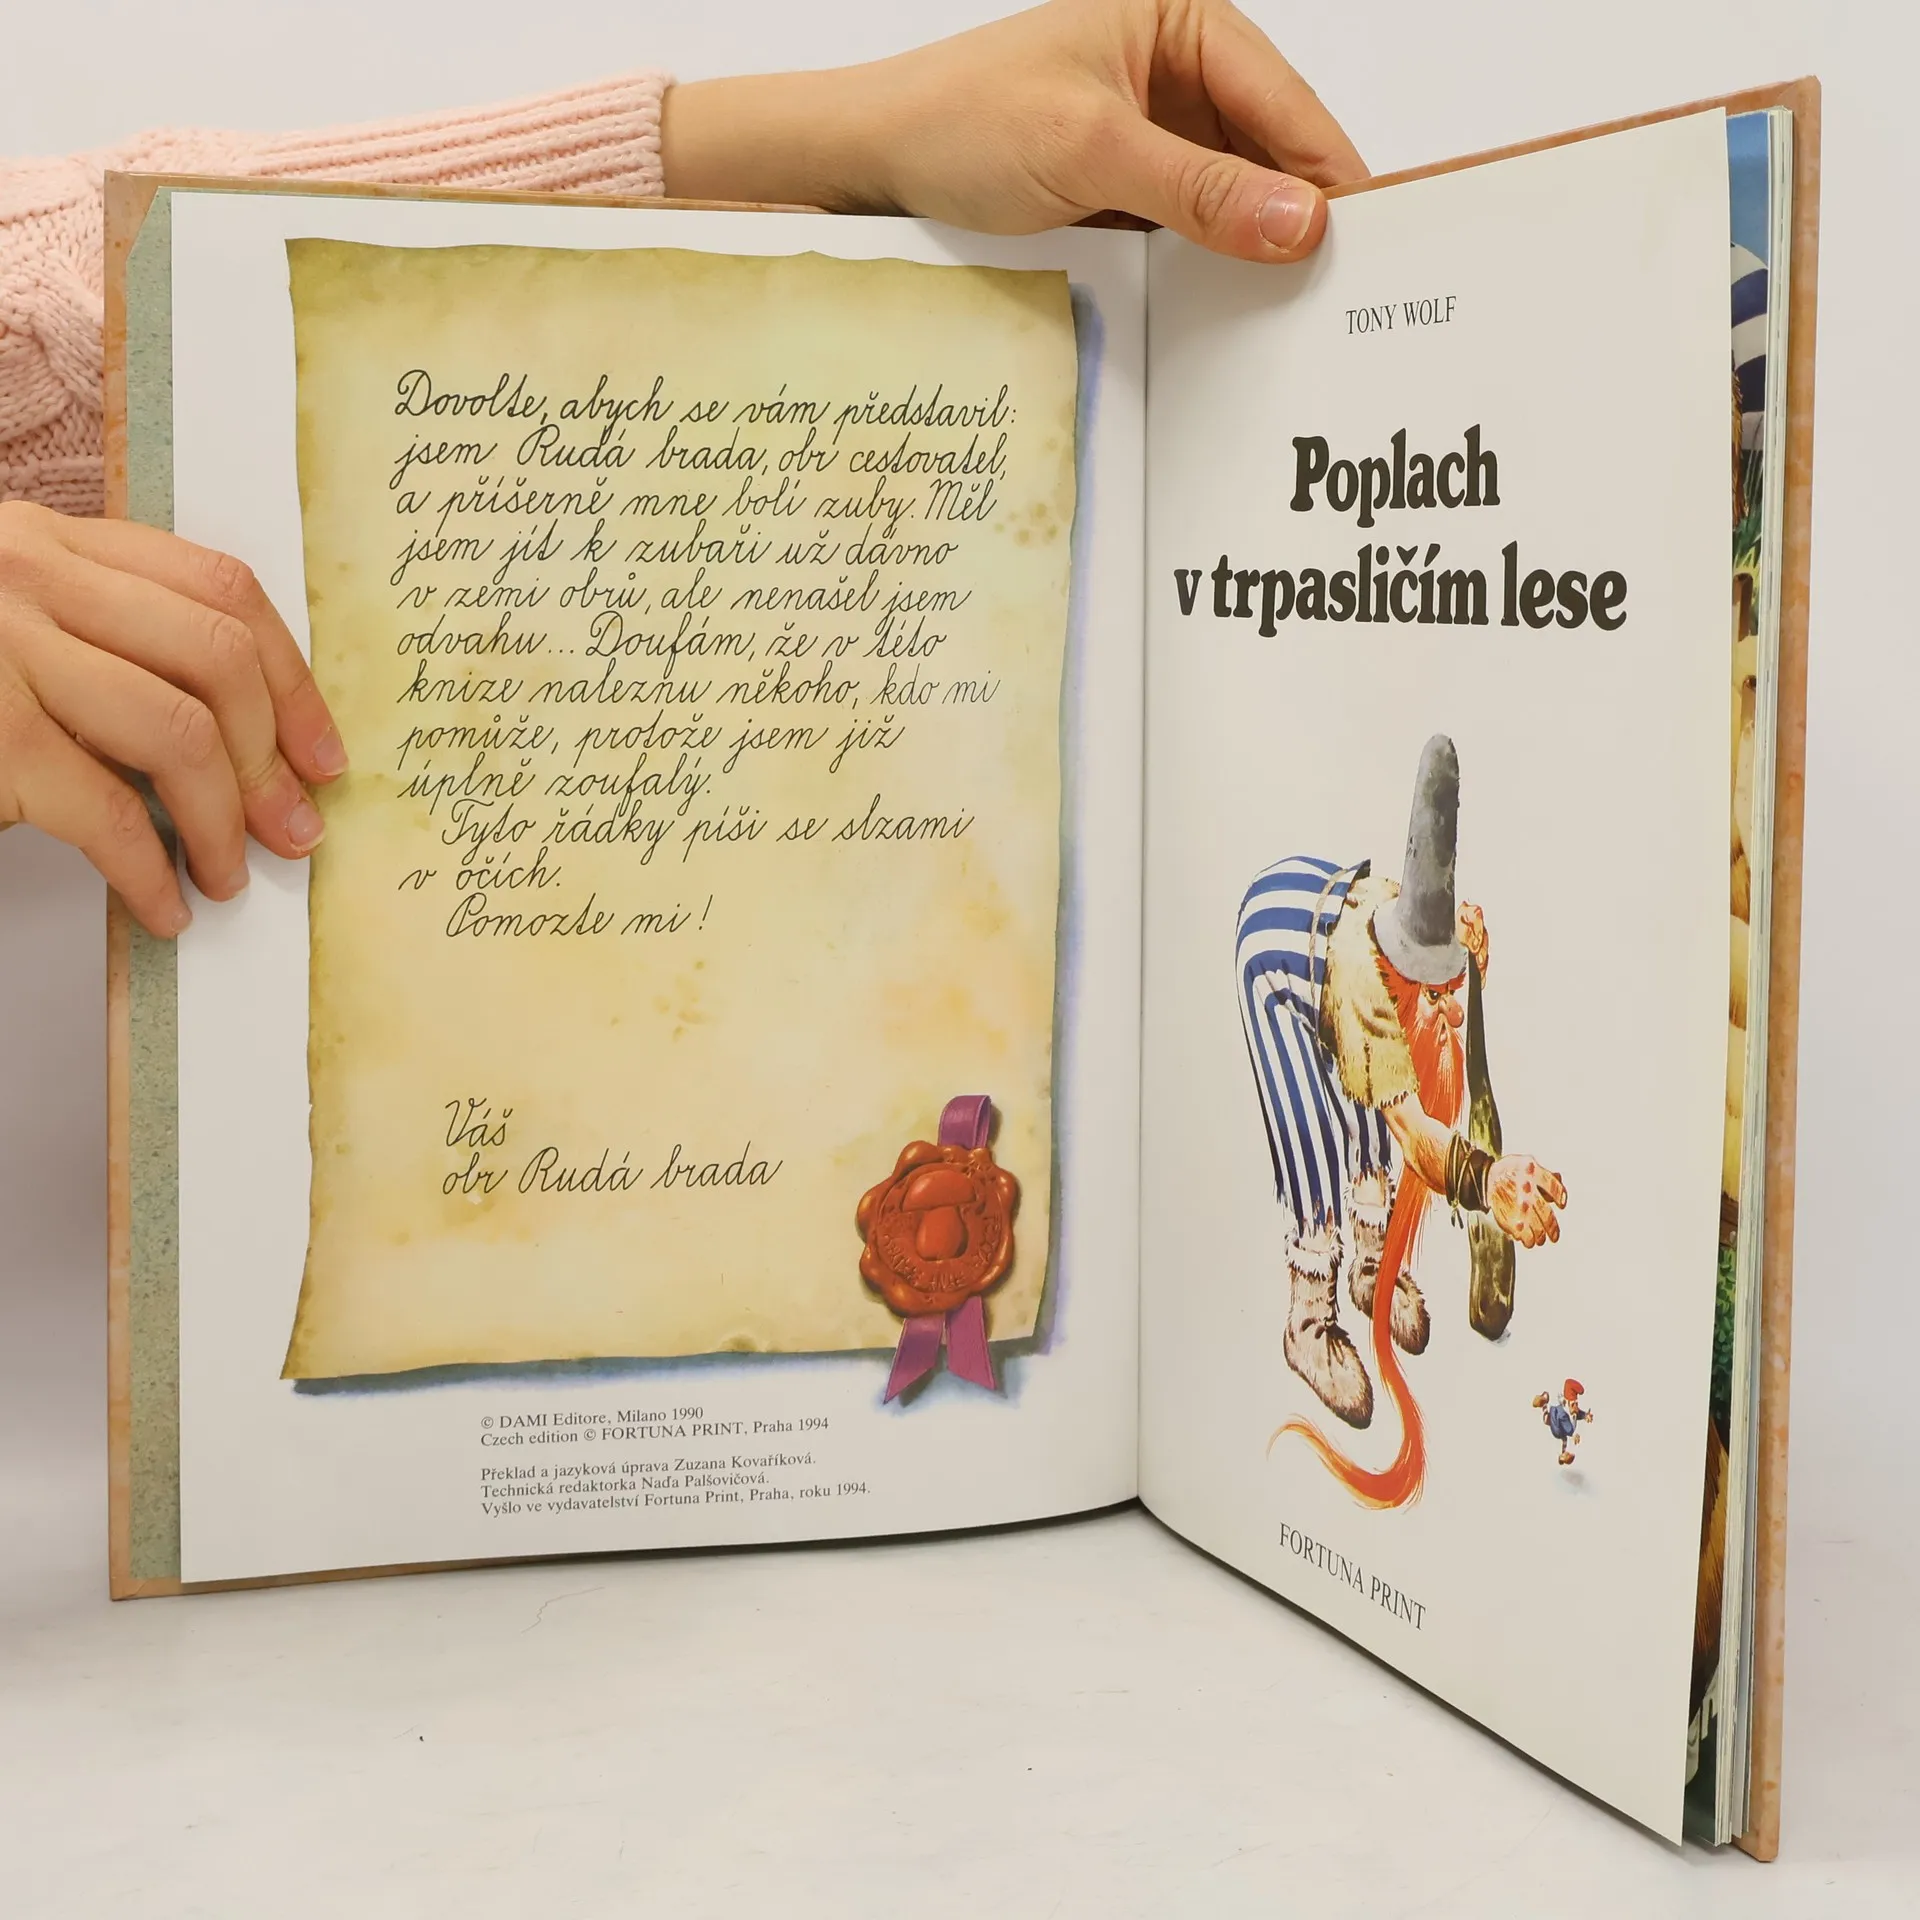 Dovolte, abych se vám představil:
jsem Rudá brada, obr cestovatel,
a příšerně mne bolí zuby. Měl
jsem jít k zubaři už dávno
v zemi obrů, ale nenašel jsem
odvahu... Doufám, že v této
knize naleznu někoho, kdo mi
pomůže, protože jsem již
úplně zoufalý.
Tyto řádky píši se slzami
v očích.
Pomozte mi!
Váš
obr Rudá brada
© DAMI Editore, Milano 1990
Czech edition © FORTUNA PRINT, Praha 1994
Překlad a jazyková úprava Zuzana Kovaříková.
Technická redaktorka Naďa Palšovičová.
Vyšlo ve vydavatelství Fortuna Print, Praha, roku 1994.
TONY WOLF
Poplach
v trpasličím lese
FORTUNA PRINT